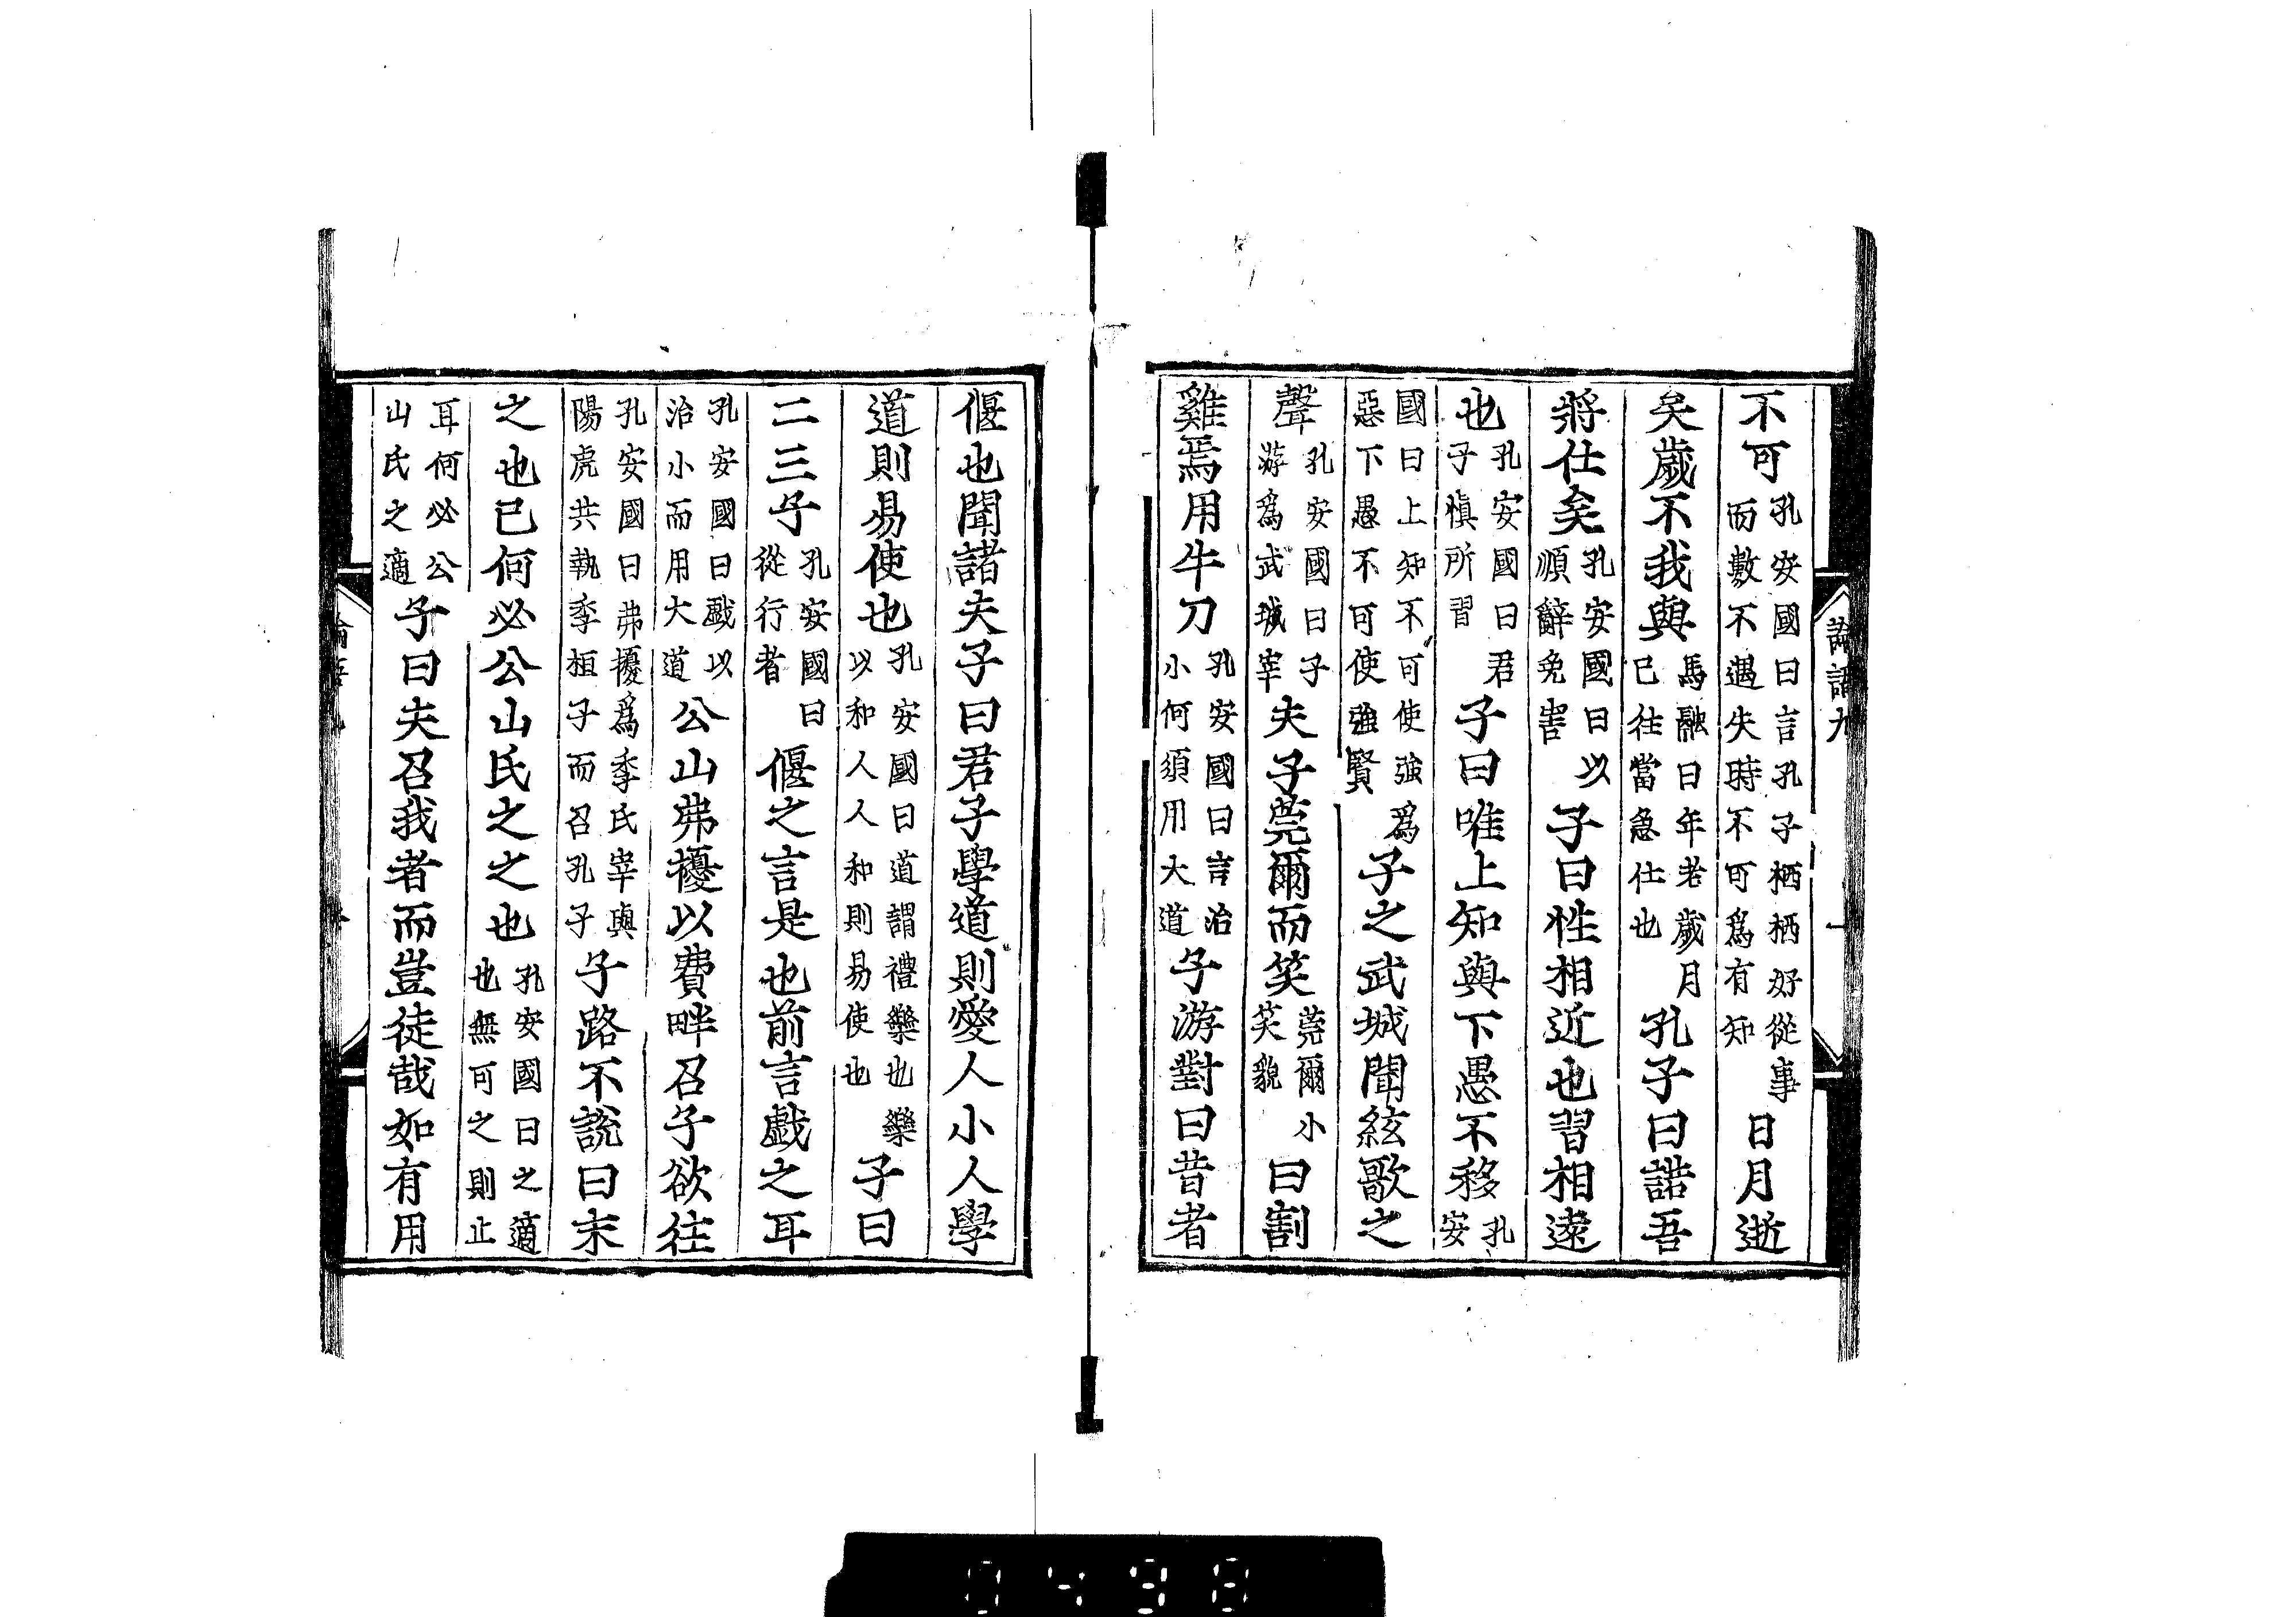 論語九 一
不可孔安國曰言孔子栖栖好從事而數不遇失時不可爲有知日月逝
矣歲不我與馬融曰年老歲月已往當急仕也孔子曰諾吾
將仕矣孔安國曰以順辭免害子曰性相近也習相遠
也孔安國曰君子愼所習子曰唯上知與下愚不移孔安
國曰上知不可使強爲惡下愚不可使強賢子之武城聞絃歌之
聲孔安國曰子游爲武城宰夫子莞爾而笑莞爾小笑貌曰割
雞焉用牛刀孔安國曰言治小何須用大道子游對曰昔者
偃也聞諸夫子曰君子學道則愛人小人學
道則易使也孔安國曰道謂禮樂也樂以和人人和則易使也子曰
二三子孔安國曰從行者偃之言是也前言戲之耳
孔安國曰戲以治小而用大道公山弗擾以費畔召子欲往
孔安國曰弗擾爲季氏宰與陽虎共執季桓子而召孔子子路不說曰末
之也已何必公山氏之之也孔安國曰之適也無可之則止
耳何必公山氏之適子曰夫召我者而豈徒哉如有用
0498